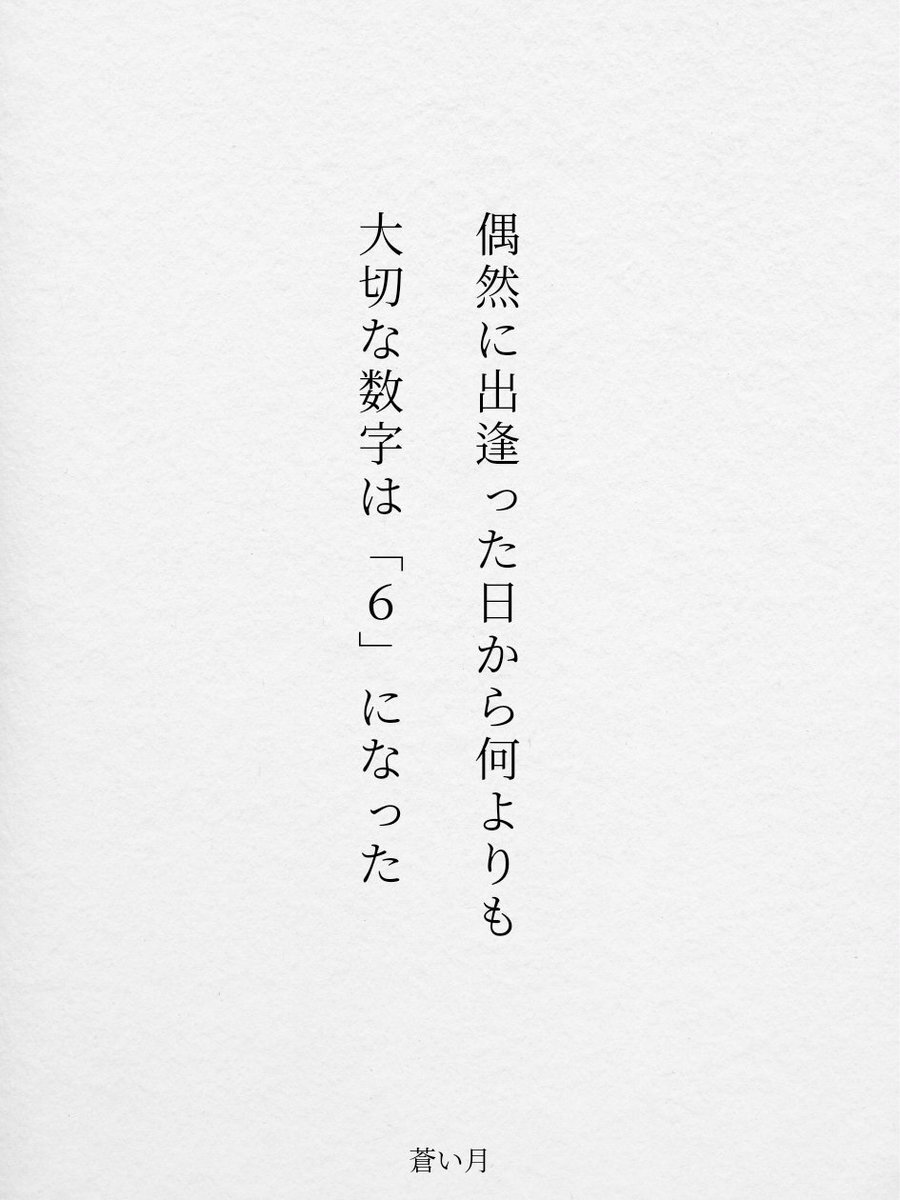 偶然に出逢った日から何よりも
大切な数字は「６」になった
蒼い月